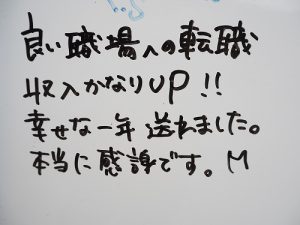 良い職場への転職
収入かなりUP!!
幸せな一年送れました。
本当に感謝です。M